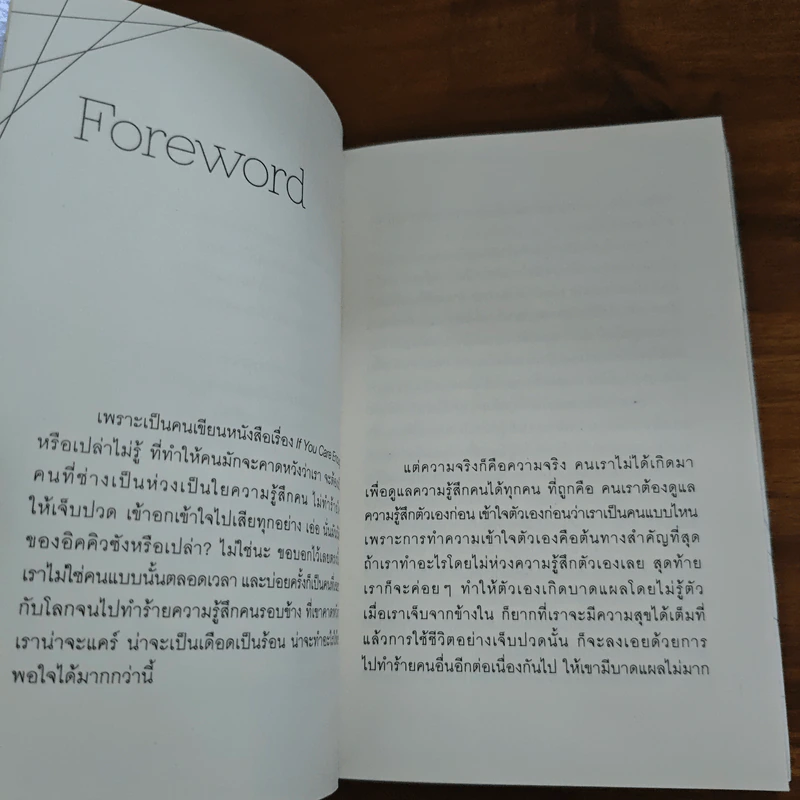 Foreword
เพราะเป็นคนเขียนหนังสือเรื่อง If You Care
หรือเปล่าไม่รู้ ที่ทำให้คนมักจะคาดหวังว่าเรา
คนที่ช่างเป็นห่วงเป็นใยความรู้สึกคน
ให้เจ็บปวด เข้าอกเข้าใจไปเสียทุกอย่าง เอ่อ
ของอิคคิวซังหรือเปล่า? ไม่ใช่นะ ขอบอกไว้เลย
เราไม่ใช่คนแบบนั้นตลอดเวลา และบ่อยครั้งก็เป็นคน
กับโลกจนไปทำร้ายความรู้สึกคนรอบข้าง ที่เขา
เราน่าจะแคร์ น่าจะเป็นเดือดเป็นร้อน น่าจะ
พอใจได้มากกว่านี้
แต่ความจริงก็คือความจริง คนเราไม่ได้เกิดมา
เพื่อดูแลความรู้สึกคนได้ทุกคน ที่ถูกคือ คนเราต้องดูแล
ความรู้สึกตัวเองก่อน เข้าใจตัวเองก่อนว่าเราเป็นคนแบบไหน
เพราะการทำความเข้าใจตัวเองคือต้นทางสำคัญที่สุด
ถ้าเราทำอะไรโดยไม่ห่วงความรู้สึกตัวเองเลย สุดท้าย
เราก็จะค่อยๆ ทำให้ตัวเองเกิดบาดแผลโดยไม่รู้ตัว
เมื่อเราเจ็บจากข้างใน ก็ยากที่เราจะมีความสุขได้เต็มที่
แล้วการใช้ชีวิตอย่างเจ็บปวดนั้น ก็จะลงเอยด้วยการ
ไปทำร้ายคนอื่นอีกต่อเนื่องกันไป ให้เขามีบาดแผลไม่มาก